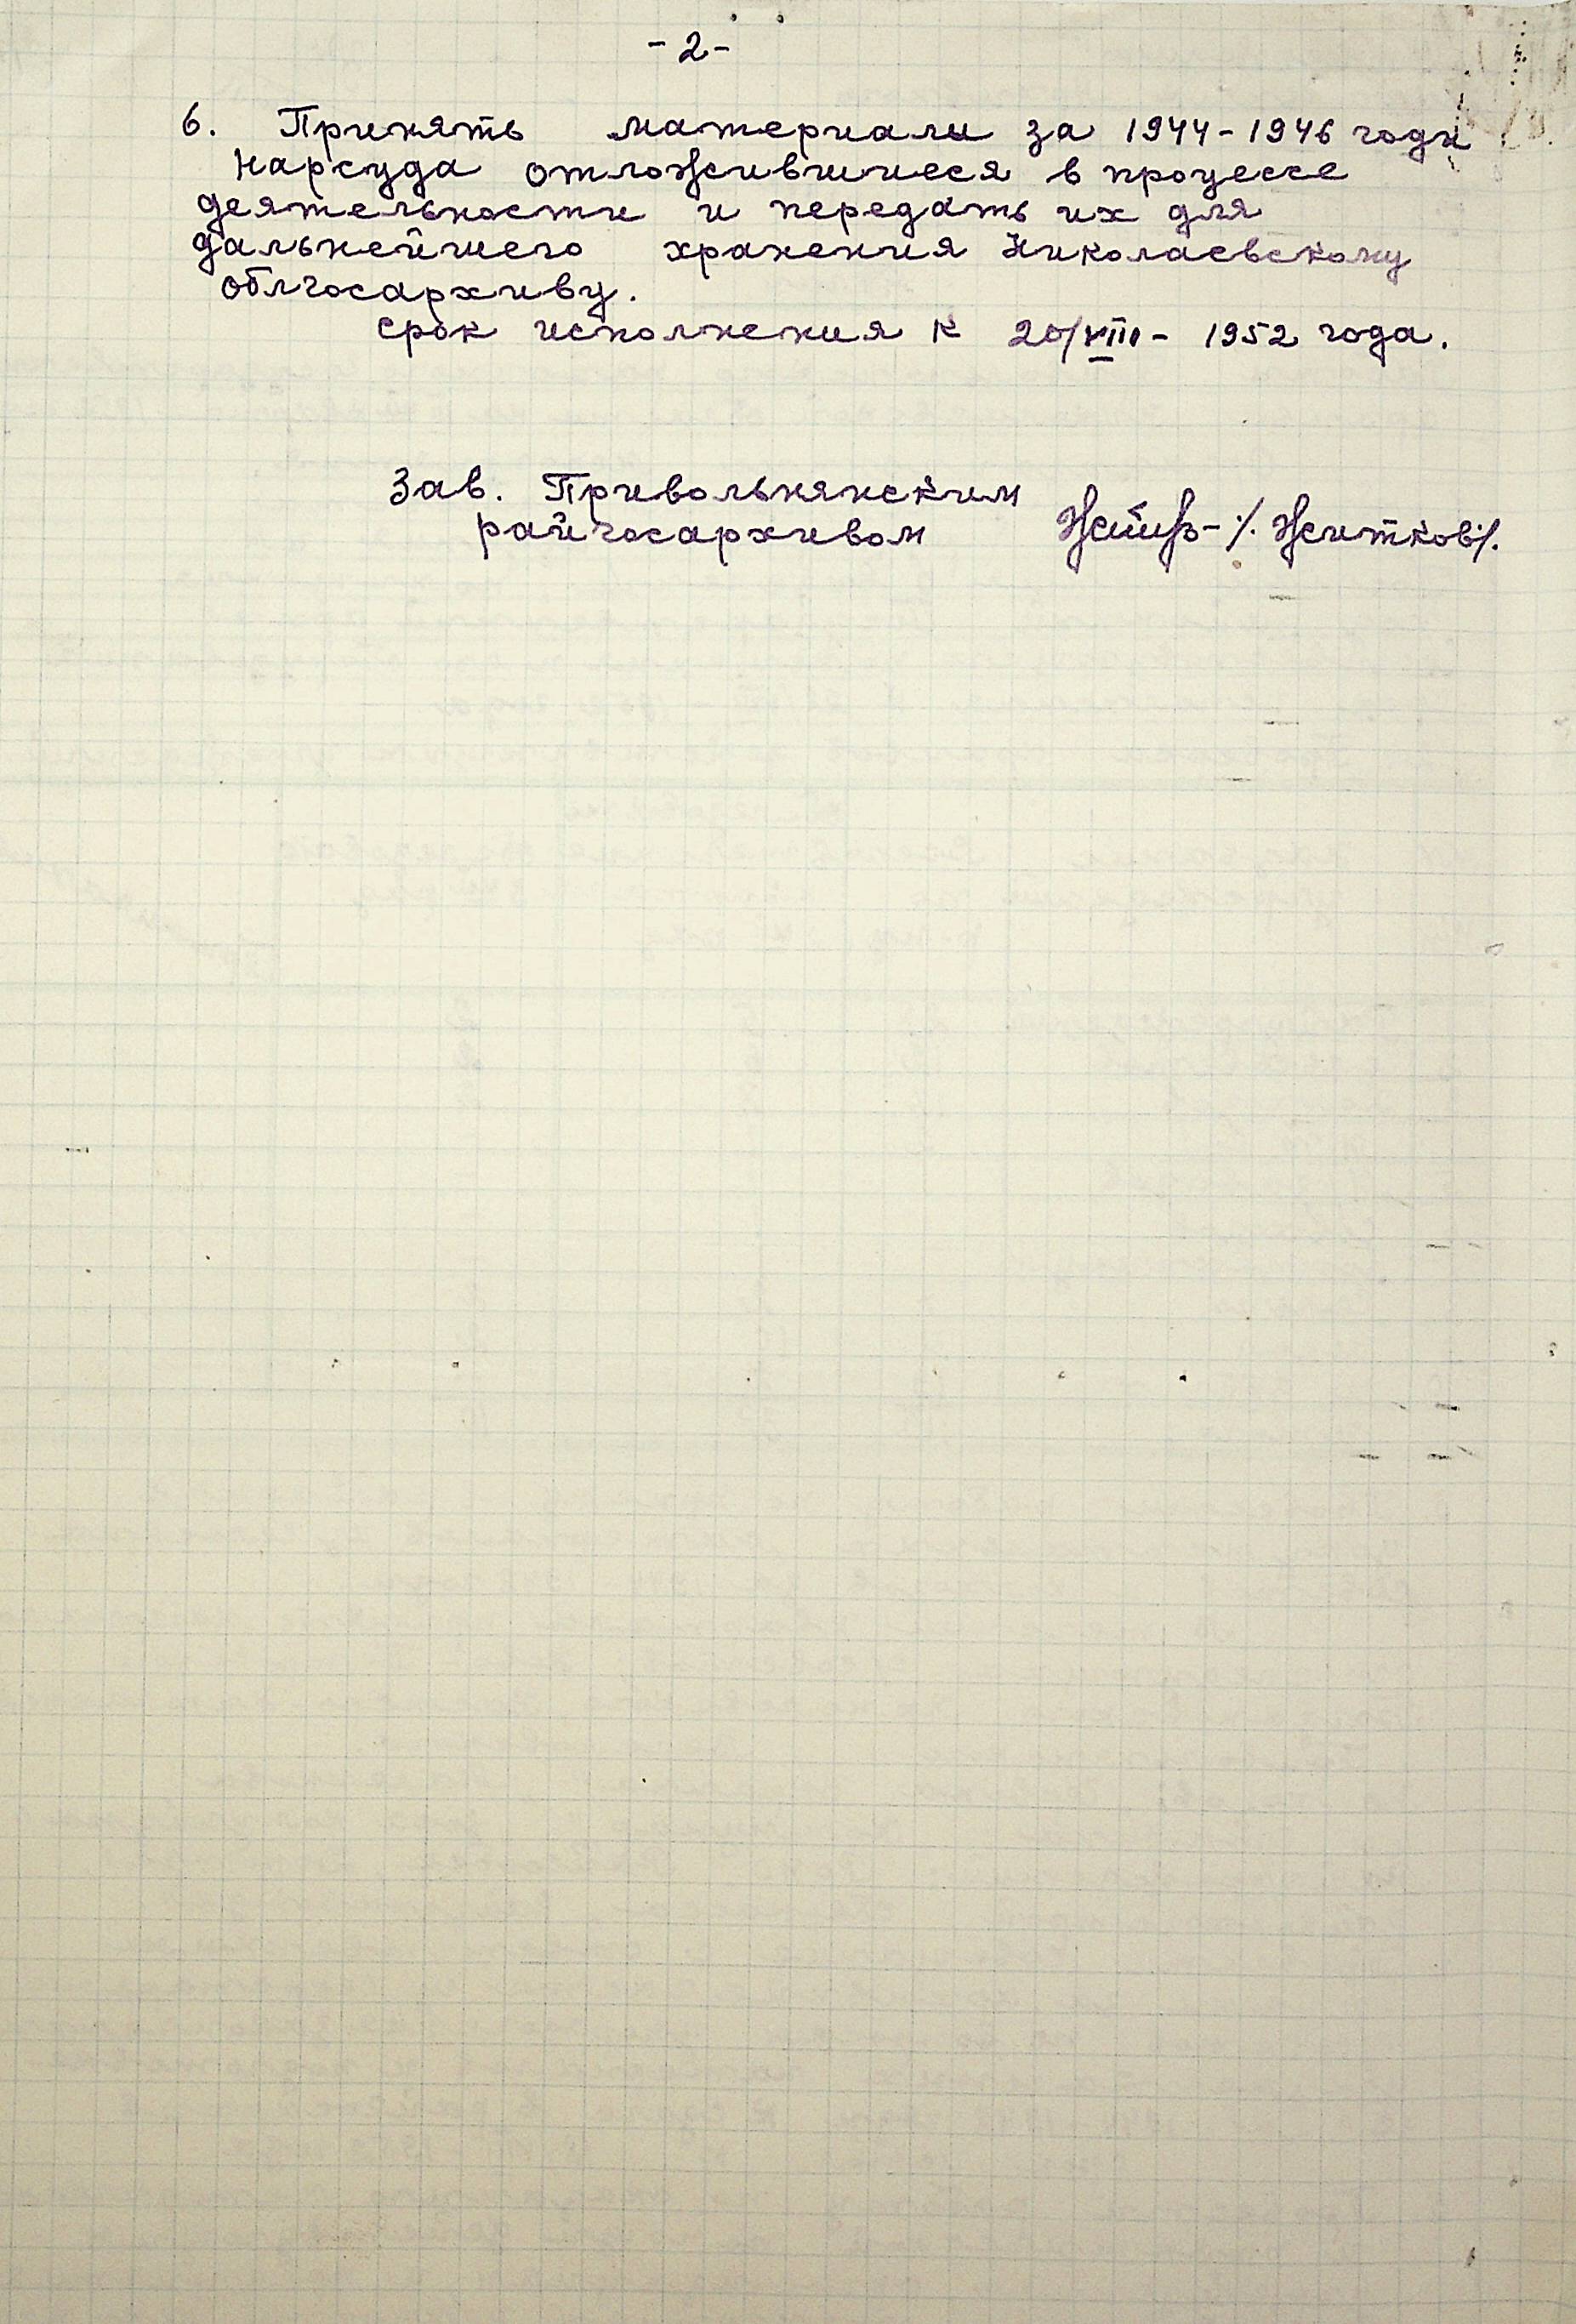 -2-
6. Принять материалы за 1944-1946 годы
Нарсуда отложившиеся в процессе
деятельности и передать их для
дальнейшего хранения Николаевскому
облгосархиву.
срок исполнения к 20/VIII- 1952 года.
Зав. Привольнянским
райгосархивом /. Житков/.